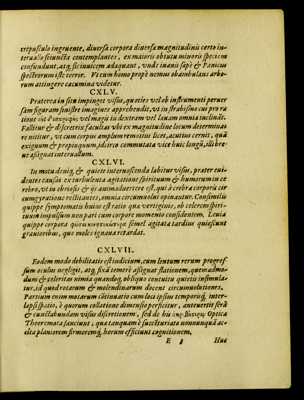 crepusculo ingruente, diuersa corpora diuersa magnitudinis certo in-
teruallo seiuncta contemplantes, ex maioris obtutu minoris speciem
confundunt, atq; sic inuicem adæquant, vnde inanis sæpè & Panicus
spectrorum est error. Vt cum homo propè nemus obambulans arbo-
rum attingere cacumina videtur.
CXLV.
Præterea in situ impinget visus, quoties vel ob instrumenti peruer
sam figuram sinistre imagines apprehendit, vt in strabis cui pro ra
tione vel magis in dextram vel læuam omnia inclinãt.
Fallitur & discretrix facultas vbi ex magnitudine locum determina
re nititur, vt cum corpus amplum remotius licet, acutius cernit, quã
exiguum & propinquum, id circo commutata vice huic longũ, illi bre
ue assignat interuallum.
CXLVI.
In motu deniq; & quiete internoscenda labitur visus, præter eui-
dentes causas ex turbulenta agitatione spirituum & humorum in ce
rebro, vt in ebriosis & ijs animaduertere est, qui à crebra corporis cir
cumgyratione vellicantes, omnia circummoueri opinantur. Consimilis
quippe symptomatis huius est ratio quæ vertiginis, ob celerem spiri-
tuum impulsum non pari cum corpore momento considentem. Leuia
quippe corpora semel agitata tardius quiescunt
grauioribus, quæ moles ignaua retardat.
CXLVII.
Eodem modo debilitatis est iudicium, cum lentum rerum progres-
sum oculus negligit, atq; fixã temerè assignat stationem, quemadmo-
dum & celeritas nimia quandoq; obliquo conatu quietis insimula-
tur, id quod rotarum & molendinarum docent circumuolutiones.
Partium enim motarum cõtinuatio cum loci ipsius temporisq; inter-
lapsi spatio, è quorum collatione dimensio perficitur, antuertit ferè
& cunctabundam visus discretionem, sed de his Optica
Theoremata sanciunt, quæ tanquam è
E 3 Huc